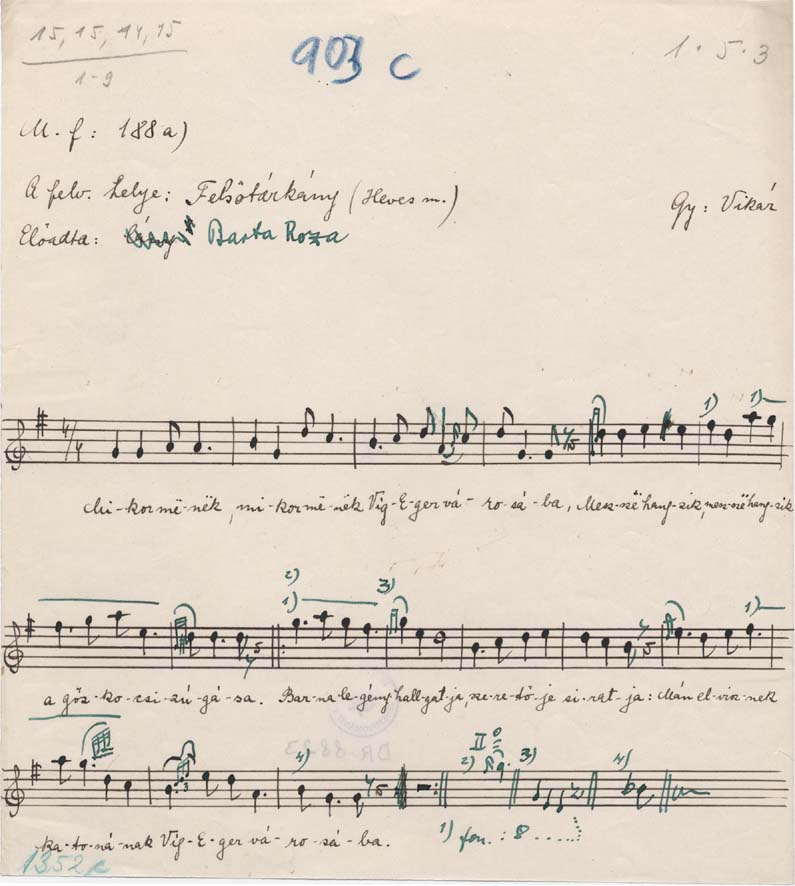 15, 15, 14, 15
1-9
903 c
1. 5. 3
M. f: 188 a)
A felv. helye: Felsőtárkány (Heves m.)
Gy: Vikár
Előadta: Barta Roza
4/4
1) 1)
Mi-kor më-nëk, mi-kor më-nëk Víg-E-ger vá-ro-sá-ba, Mesz-szë hang-zik, mesz-szë hang-zik
2)
1) 3) 1)
a gőz-ko-csi zú-gá-sa. Bar-na le-gény hall-gat-ja, sze-re-tő-je si-rat-ja: Mán el-visz-nek
4) II 2) 3) 4)
ka-to-ná-nak Víg-E-ger vá-ro-sá-ba.
1) fon. : 8 . . . .
1352 c